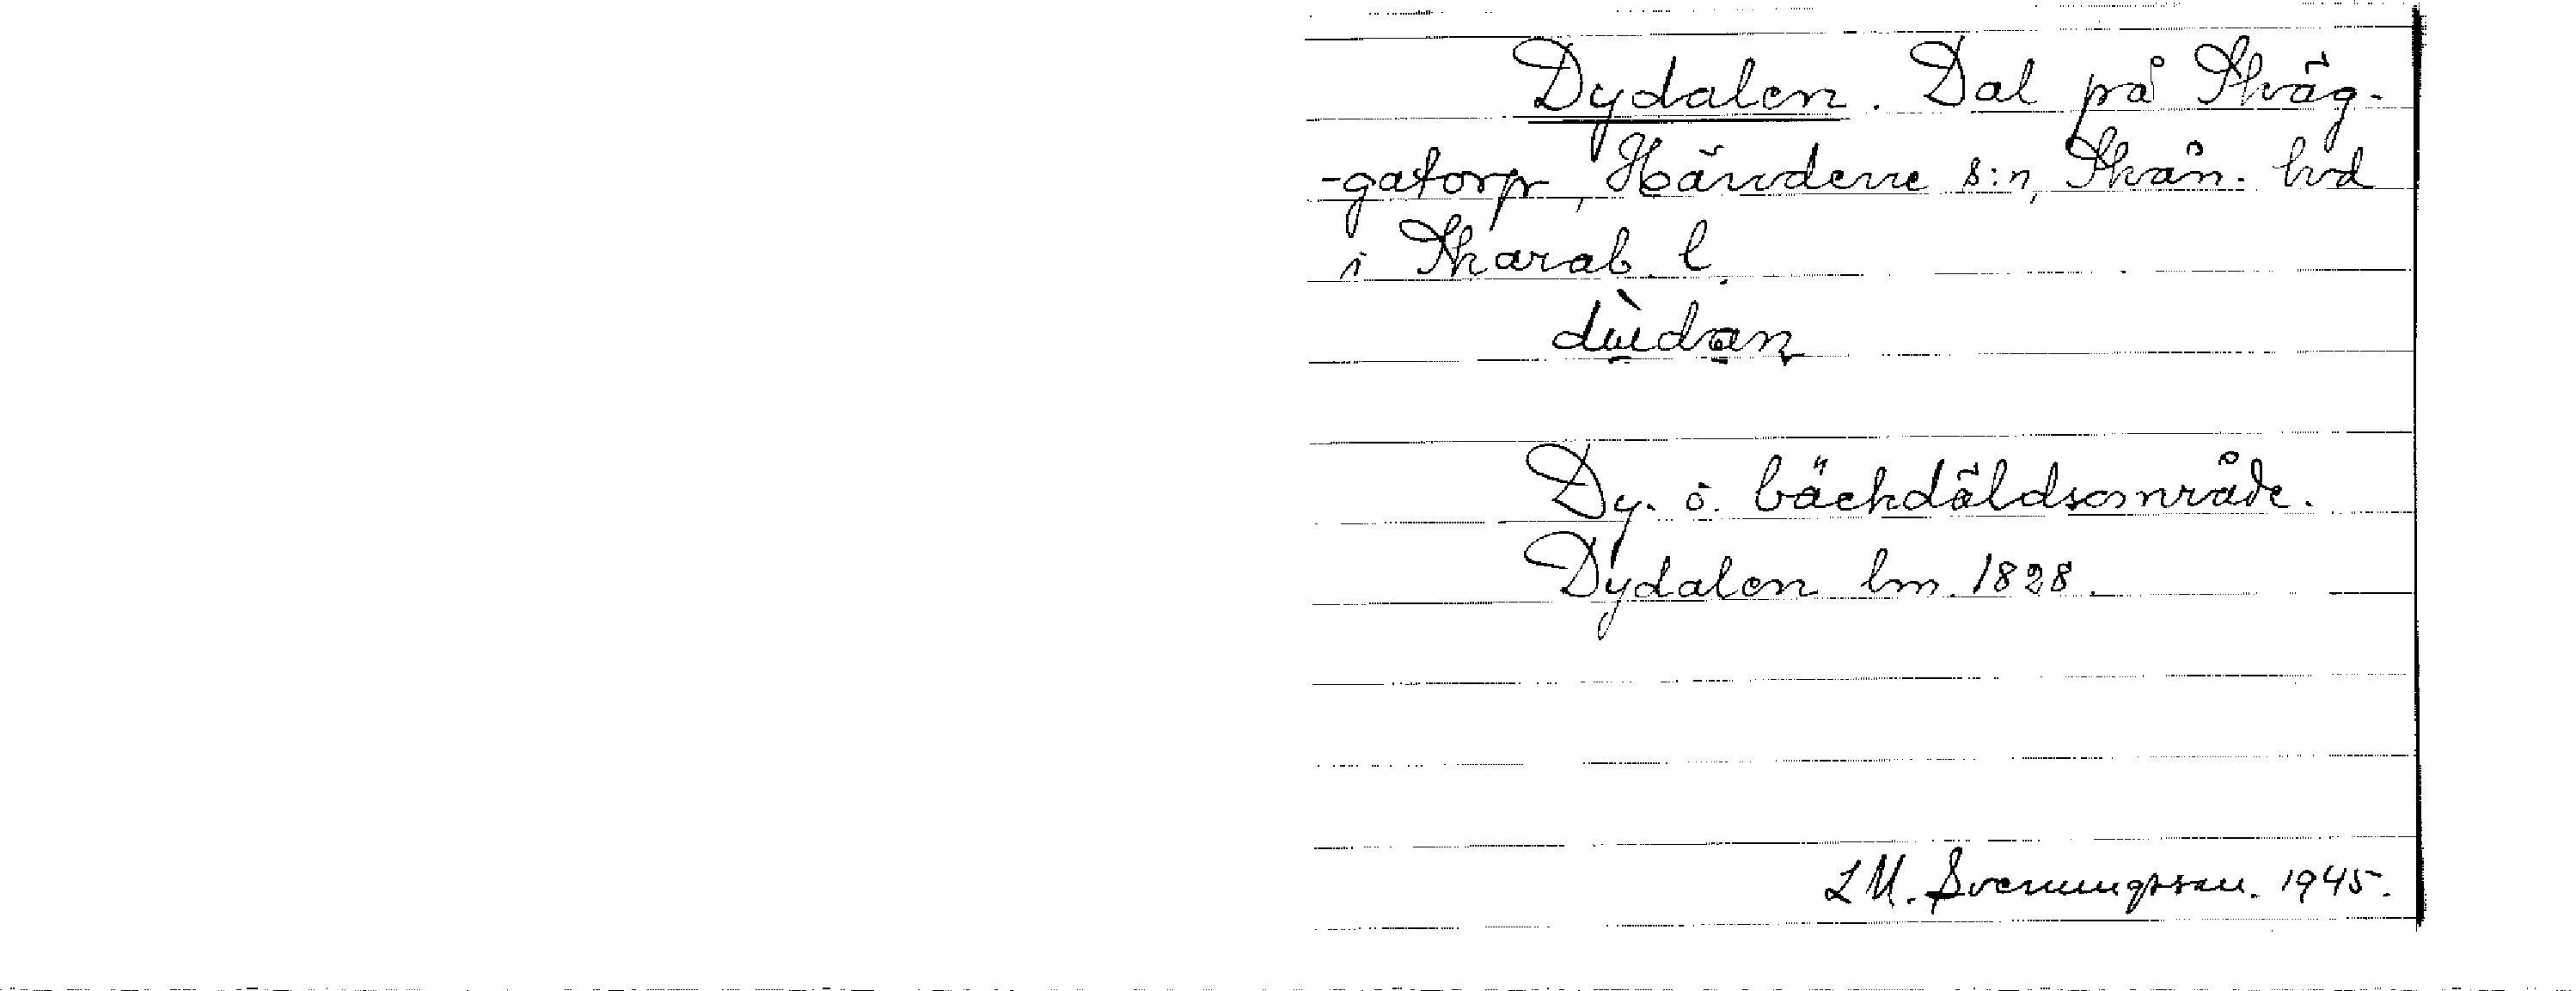 Dydalen. Dal på Skäg-
-gatorp, Händene s:n, Skån. hd
i Skarab. l.
dùdan
Dy- o. bäckdäldsområde.
Dydalen lm. 1828.
L M. Svenungsson. 1945.